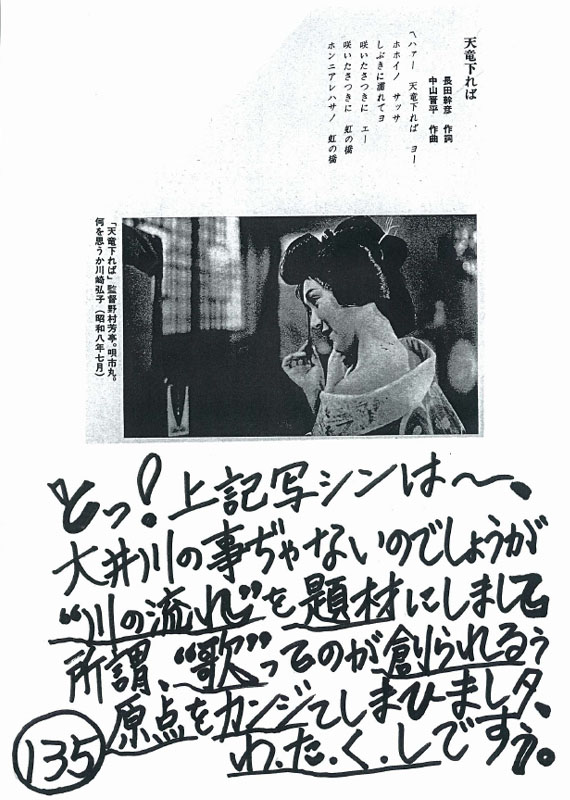 天竜下れば
長田幹彦 作詞
中山晋平 作曲
〽ハァー 天竜下れば ヨー
ホホイノ サッサ
しぶきに濡れてヨ
咲いたさつきに エー
咲いたさつきに 虹の橋
ホンニアレハサノ 虹の橋
「天竜下れば」監督野村芳亭。唄市丸。
何を思うか川崎弘子(昭和八年七月)
とっ!上記写シンは〜、
大井川の事ぢゃないのでしょうが
“川の流れ”を題材にしまして
所謂、“歌”ってのが創られるぅ
原点をカンジてしまひましタ、
わ.た.く.しですぅ。
135